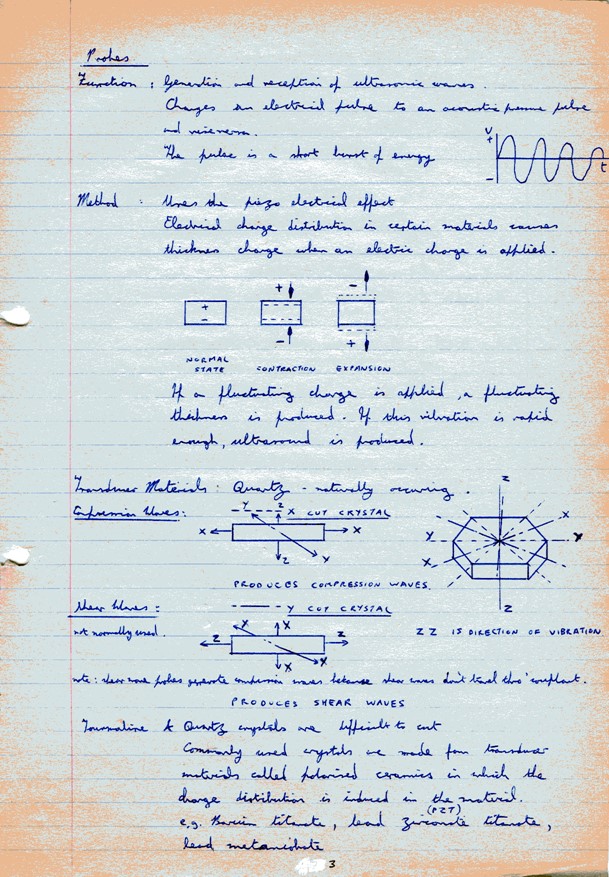 Probes
Function : Generation and reception of ultrasonic waves.
Changes an electrical pulse to an acoustic pressure pulse
and viceversa.
The pulse is a short burst of energy
V
+
-
t
Method : Uses the piezo electrical effect
Electrical charge distribution in certain materials causes
thickness change when an electric charge is applied.
+ -
+
-
- +
NORMAL STATE CONTRACTION EXPANSION
If a fluctuating charge is applied, a fluctuating
thickness is produced. If this vibration is rapid
enough, ultrasound is produced.
Transducer Materials: Quartz - naturally occuring.
Compression Waves: X CUT CRYSTAL
Y Z
X X
Z Y
PRODUCES COMPRESSION WAVES.
Z
X
Y Y
X
Z
Shear Waves: Y CUT CRYSTAL
not normally used.
X X
Z Z
X X
ZZ IS DIRECTION OF VIBRATION
note: shear wave probes generate compression waves because shear waves don't travel thro' couplant.
PRODUCES SHEAR WAVES
Tourmaline & Quartz crystals are difficult to cut
Commonly used crystals are made from transducer
materials called polarised ceramics in which the
charge distribution is induced in the material.
(PZT)
e.g. Barium titanate, lead zirconate titanate,
lead metaniobate
3